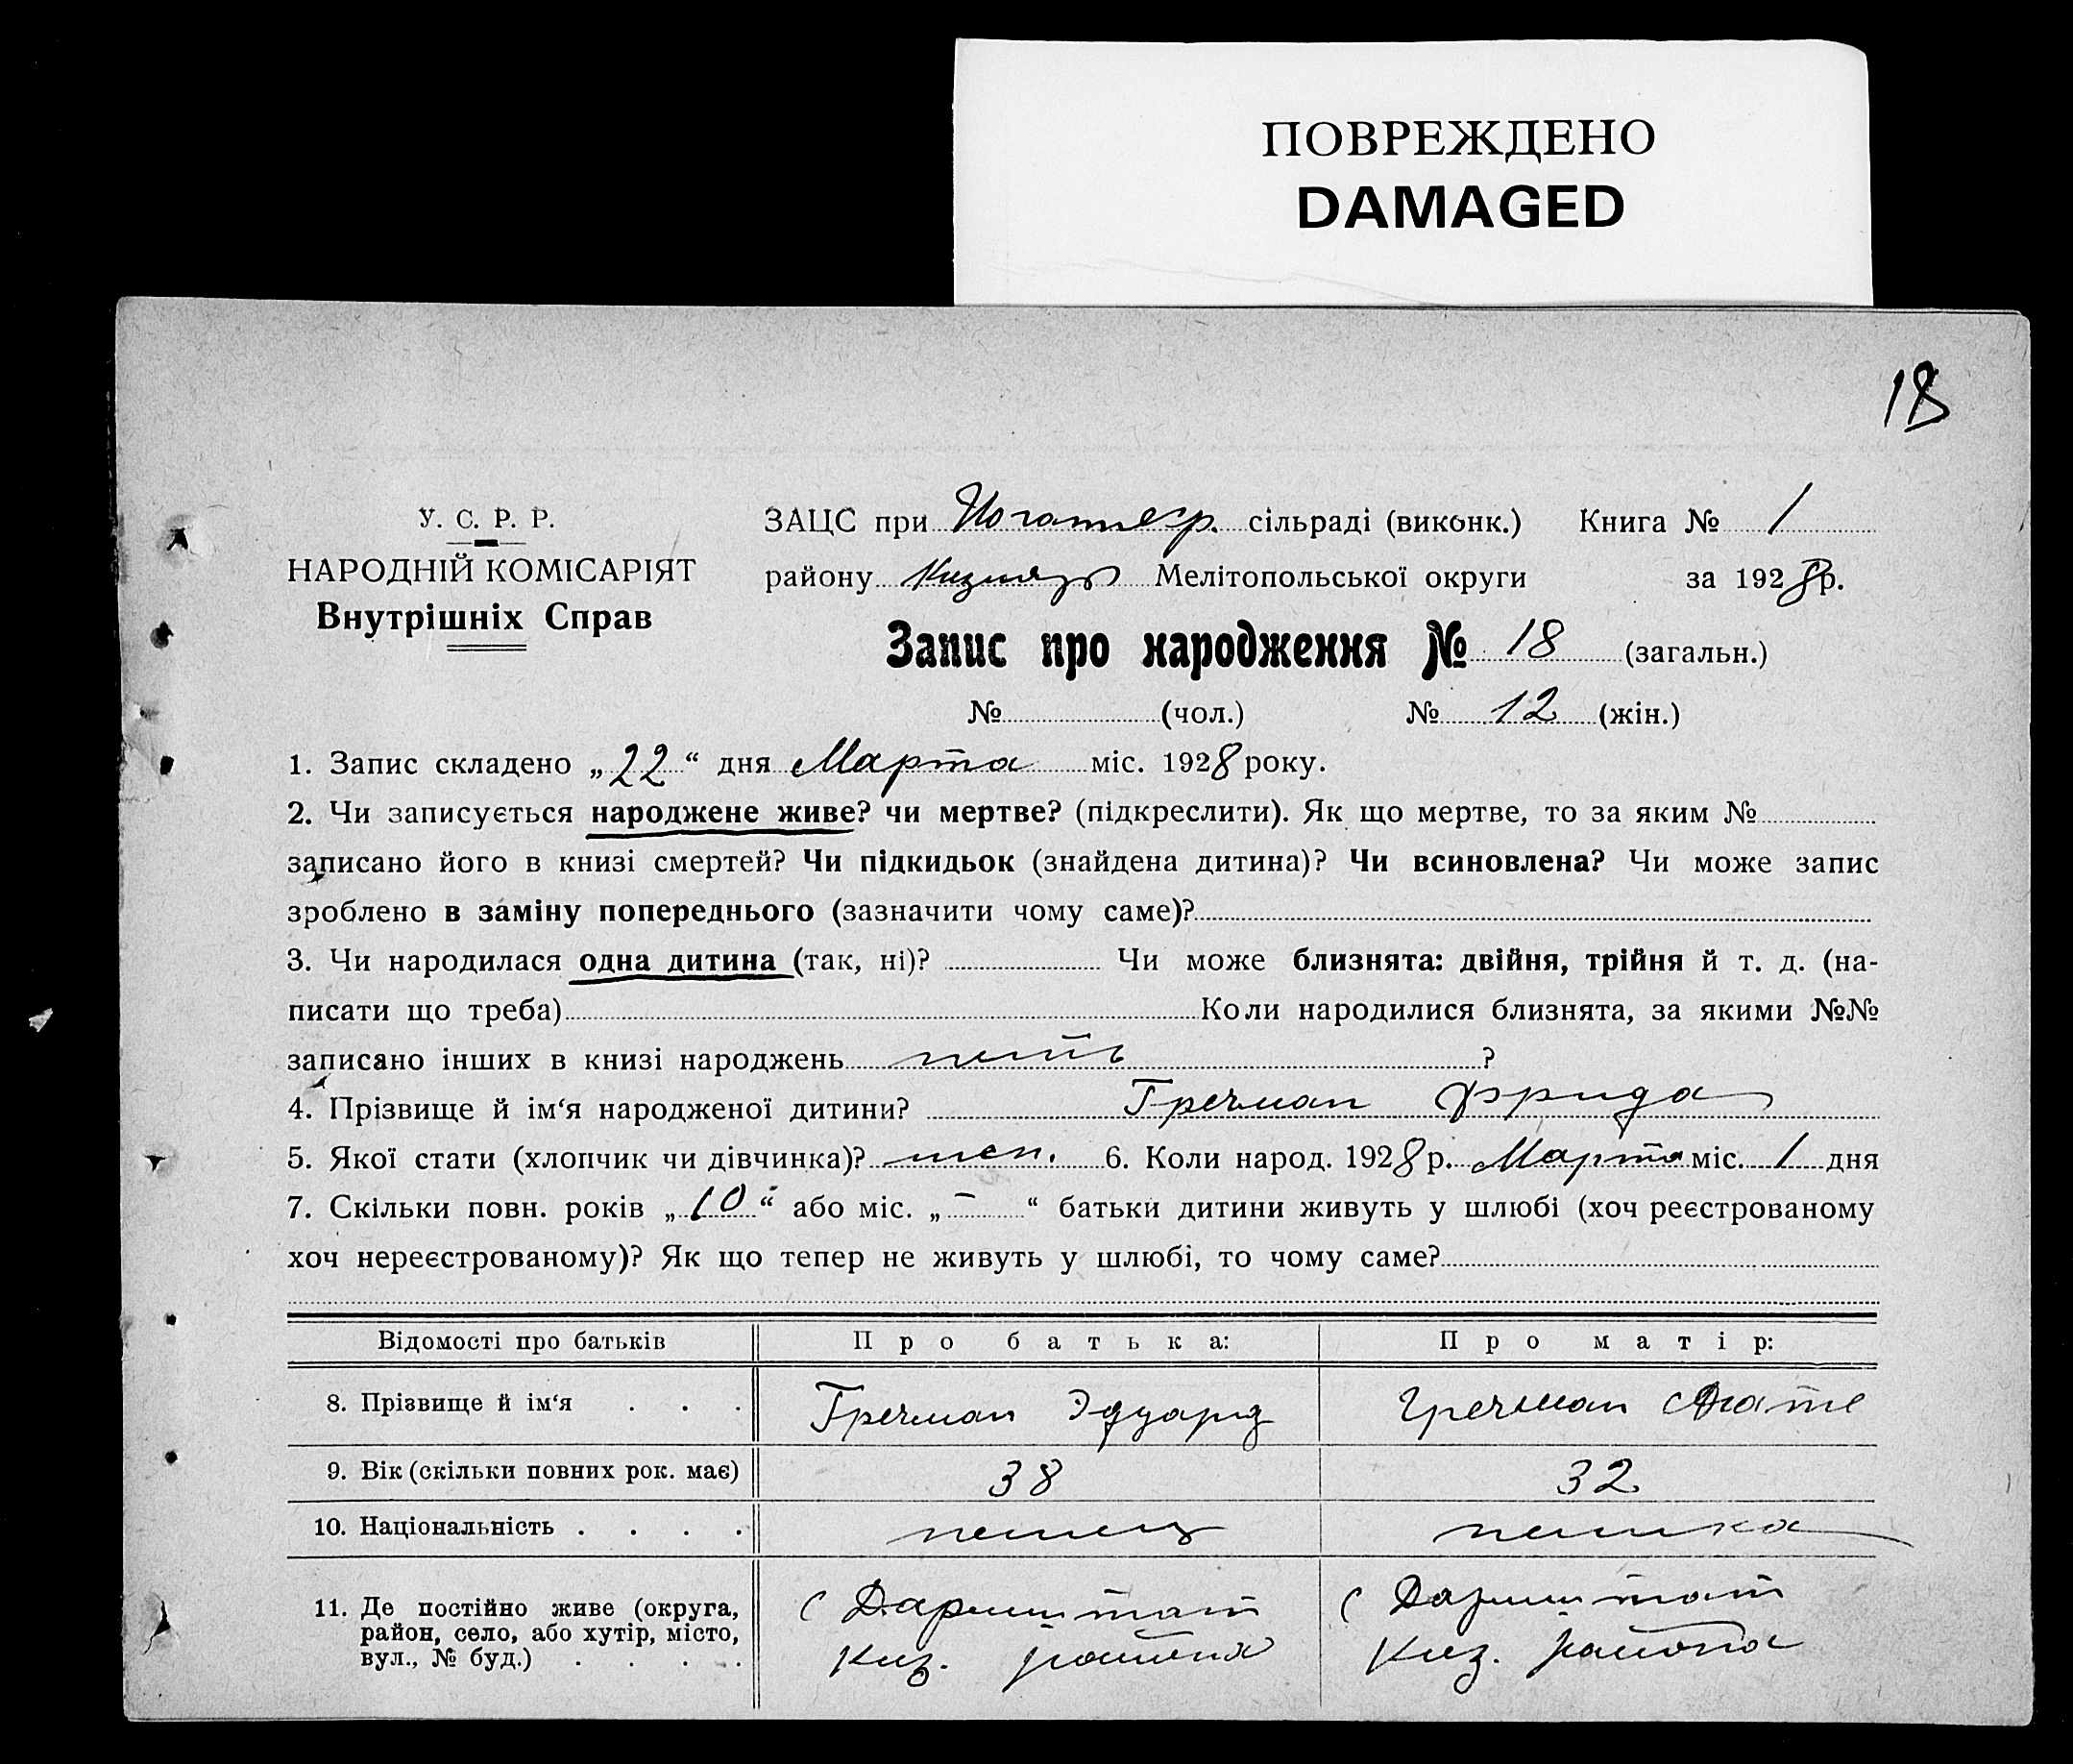 ПОВРЕЖДЕНО
DAMAGED
18
У. С. Р. Р.
НАРОДНІЙ КОМІСАРІЯТ
Внутрішніх Справ
ЗАЦС при сільраді (виконк.) Книга № 1
району Мелітопольської округи за 1928 р.
Запис про народження № 18 (загальн.)
№ (чол.) № 12 (жін.)
1. Запис складено „22“ дня Марта міс. 1928 року.
2. Чи записується народжене живе? чи мертве? (підкреслити). Як що мертве, то за яким №
записано його в книзі смертей? Чи підкидьок (знайдена дитина)? Чи всиновлена? Чи може запис
зроблено в заміну попереднього (зазначити чому саме)?
3. Чи народилася одна дитина (так, ні)? Чи може близнята: двійня, трійня й т. д. (на-
писати що треба) Коли народилися близнята, за якими №№
записано інших в книзі народжень ?
4. Прізвище й ім‘я народженої дитини? Гречман Фрида
5. Якої стати (хлопчик чи дівчинка)? жен. 6. Коли народ. 1928 р. Марта міс. 1 дня
7. Скільки повн. років „10“ або міс. „–“ батьки дитини живуть у шлюбі (хоч реєстрованому
хоч нереєстрованому)? Як що тепер не живуть у шлюбі, то чому саме?
Відомості про батьків Про батька: Про матір:
8. Прізвище й ім‘я . . . Гречман Эдуард Гречман Агате
9. Вік (скільки повних рок. має) 38 32
10. Національність . . . . немец немка
11. Де постійно живе (округа, район, село, або хутір, місто, вул., № буд.) . . . .
с Дармштат
Киз. района
с Дармштат
Киз. района